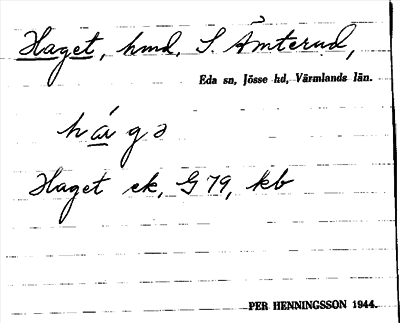 Haget, hmd, S. Åmterud,
Eda sn, Jösse hd, Värmlands län.
há̱gə
Haget ek, G 79, kb
PER HENNINGSSON 1944.